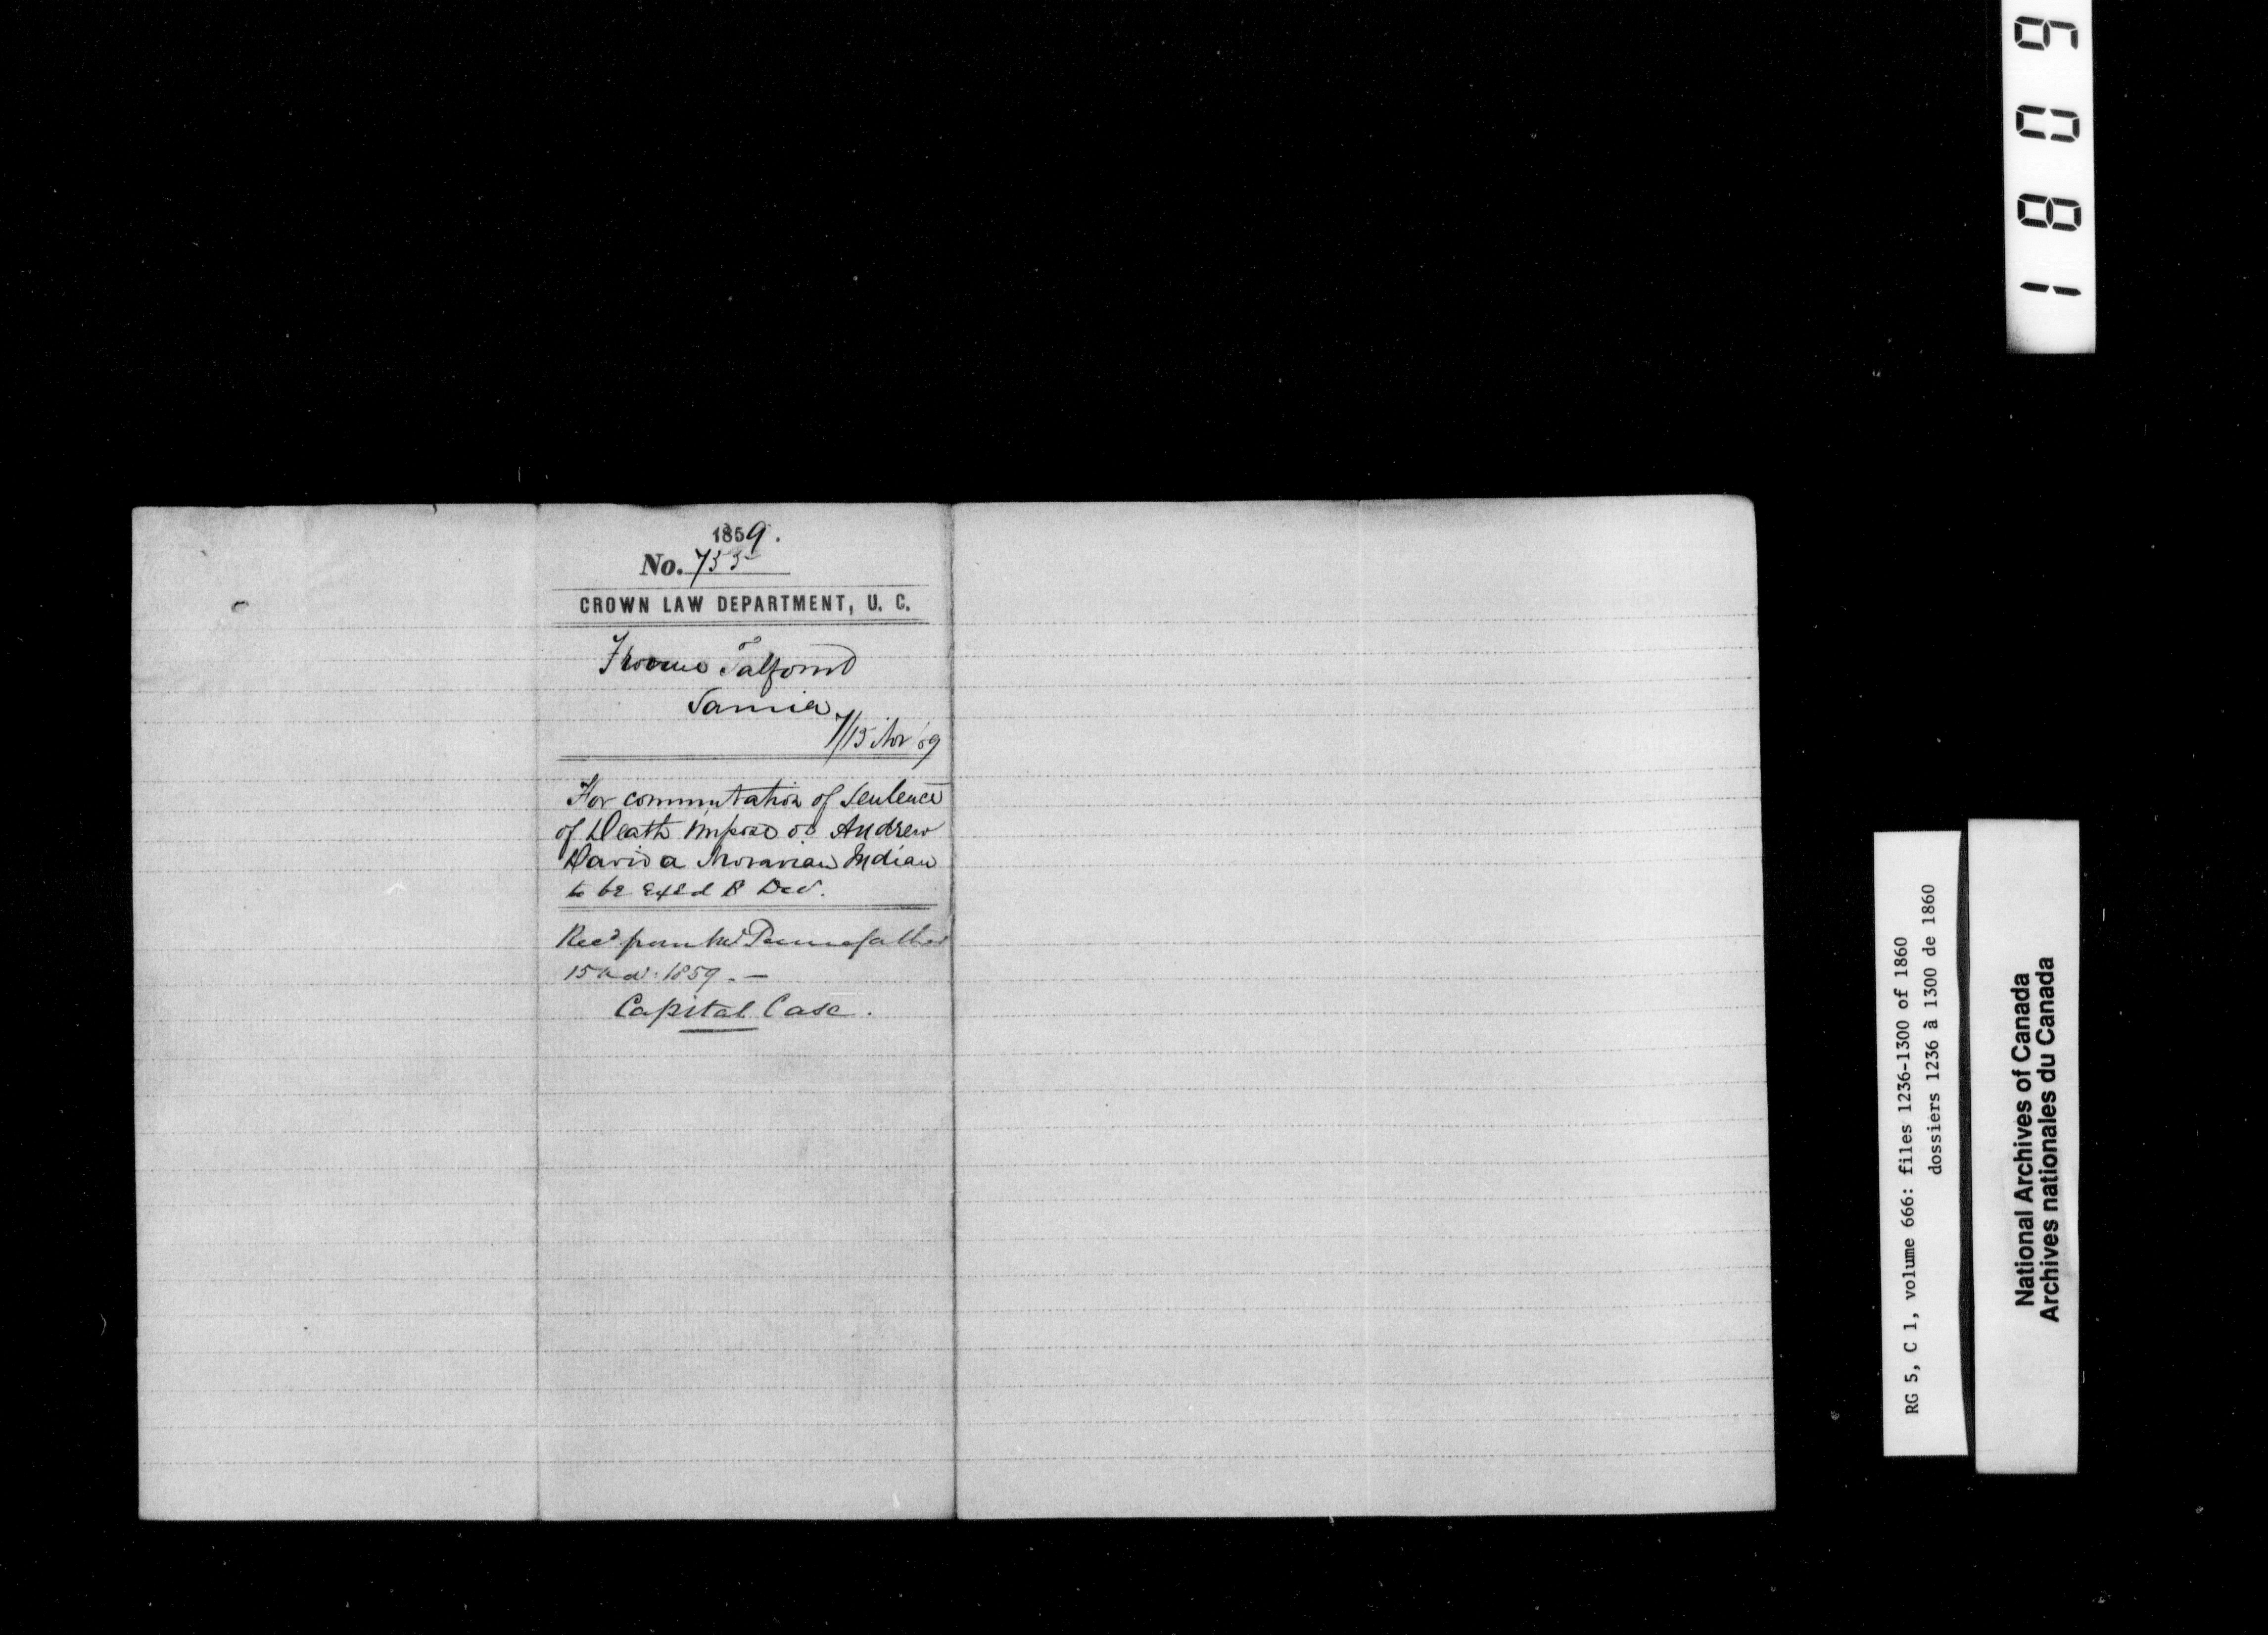 1859.
No. 755
CROWN LAW DEPARTMENT, U. C.
Froome Talfourd
Sarnia
7/15 Nov '59
For commutation of Sentence
of Death impose on Andrew
David a Moravian Indian
to be Exed 8 Decr.
Recd from Mr Pennefather
15 Nov: 1859. —
Capital Case.
1809
RG 5, C 1, volume 666: files 1236-1300 of 1860
dossiers 1236 à 1300 de 1860
National Archives of Canada
Archives nationales du Canada